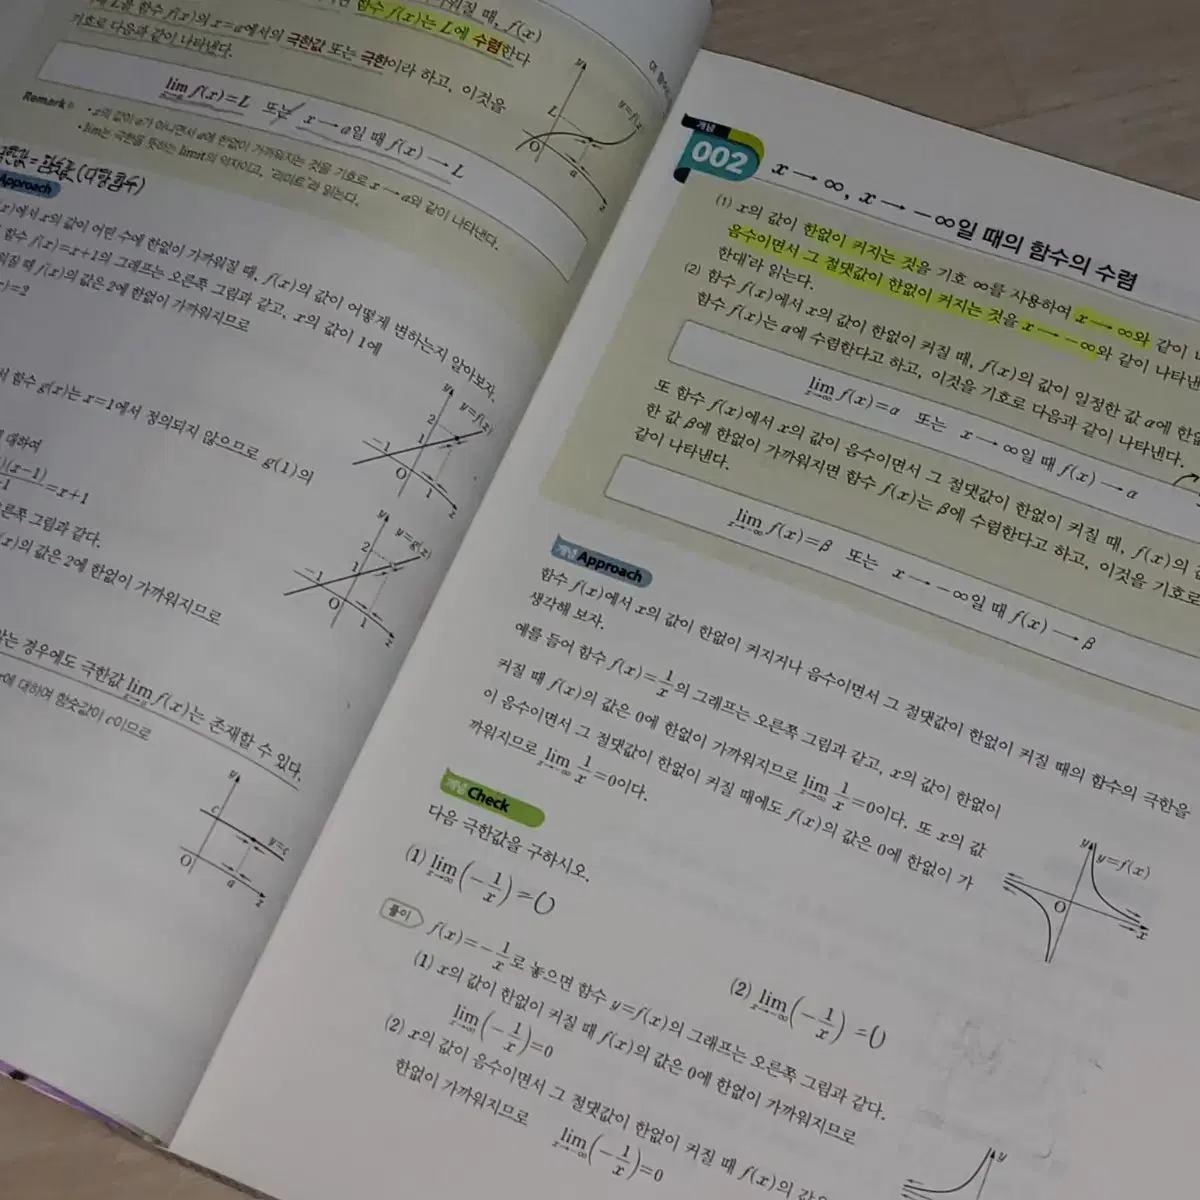 함수 f(x)는 L에 수렴한다
L를 함수 f(x)의 x=a에서의 극한값 또는 극한이라 하고, 이것을
기호로 다음과 같이 나타낸다.
lim f(x)=L 또는 x→a일 때 f(x)→L
Remark
• x의 값이 a가 아니면서 a에 한없이 가까워지는 것을 기호로 x→a와 같이 나타낸다.
• lim는 극한을 뜻하는 limit의 약자이고, '리미트'라 읽는다.
y
L
y=f(x)
O
a
x
Approach
(x)에서 x의 값이 어떤 수에 한없이 가까워질 때, f(x)의 값이 어떻게 변하는지 알아보자.
함수 f(x)=x+1의 그래프는 오른쪽 그림과 같고, x의 값이 1에
워질 때 f(x)의 값은 2에 한없이 가까워지므로
(x)=2
y
y=f(x)
2
1
-1
O
1
x
서 함수 g(x)는 x=1에서 정의되지 않으므로 g(1)의
대하여
(x-1)
=x+1
른쪽 그림과 같다.
(x)의 값은 2에 한없이 가까워지므로
y
y=g(x)
2
1
-1
O
1
x
는 경우에도 극한값 lim f(x)는 존재할 수 있다.
에 대하여 함숫값이 c이므로
y
c
y=c
O
a
x
개념
002
x→∞, x→-∞일 때의 함수의 수렴
(1) x의 값이 한없이 커지는 것을 기호 ∞를 사용하여 x→∞와 같이
음수이면서 그 절댓값이 한없이 커지는 것을 x→-∞와 같이 나타낸
한대'라 읽는다.
(2) 함수 f(x)에서 x의 값이 한없이 커질 때, f(x)의 값이 일정한 값 α에 한없
함수 f(x)는 α에 수렴한다고 하고, 이것을 기호로 다음과 같이 나타낸다.
lim x→∞ f(x)=α 또는 x→∞일 때 f(x)→α
또 함수 f(x)에서 x의 값이 음수이면서 그 절댓값이 한없이 커질 때, f(x)의 값
한 값 β에 한없이 가까워지면 함수 f(x)는 β에 수렴한다고 하고, 이것을 기호로
같이 나타낸다.
lim x→-∞ f(x)=β 또는 x→-∞일 때 f(x)→β
개념 Approach
함수 f(x)에서 x의 값이 한없이 커지거나 음수이면서 그 절댓값이 한없이 커질 때의 함수의 극한을
생각해 보자.
예를 들어 함수 f(x)=1/x의 그래프는 오른쪽 그림과 같고, x의 값이 한없이
커질 때 f(x)의 값은 0에 한없이 가까워지므로 lim x→∞ 1/x=0이다. 또 x의 값
이 음수이면서 그 절댓값이 한없이 커질 때에도 f(x)의 값은 0에 한없이 가
까워지므로 lim x→-∞ 1/x=0이다.
y
y=f(x)
O
x
개념 Check
다음 극한값을 구하시오.
(1) lim x→∞ (-1/x) =0
(2) lim x→-∞ (-1/x) =0
풀이
f(x)=-1/x로 놓으면 함수 y=f(x)의 그래프는 오른쪽 그림과 같다.
(1) x의 값이 한없이 커질 때 f(x)의 값은 0에 한없이 가까워지므로
lim x→∞ (-1/x)=0
(2) x의 값이 음수이면서 그 절댓값이 한없이 커질 때 f(x)의 값은
한없이 가까워지므로 lim x→-∞ (-1/x)=0
y